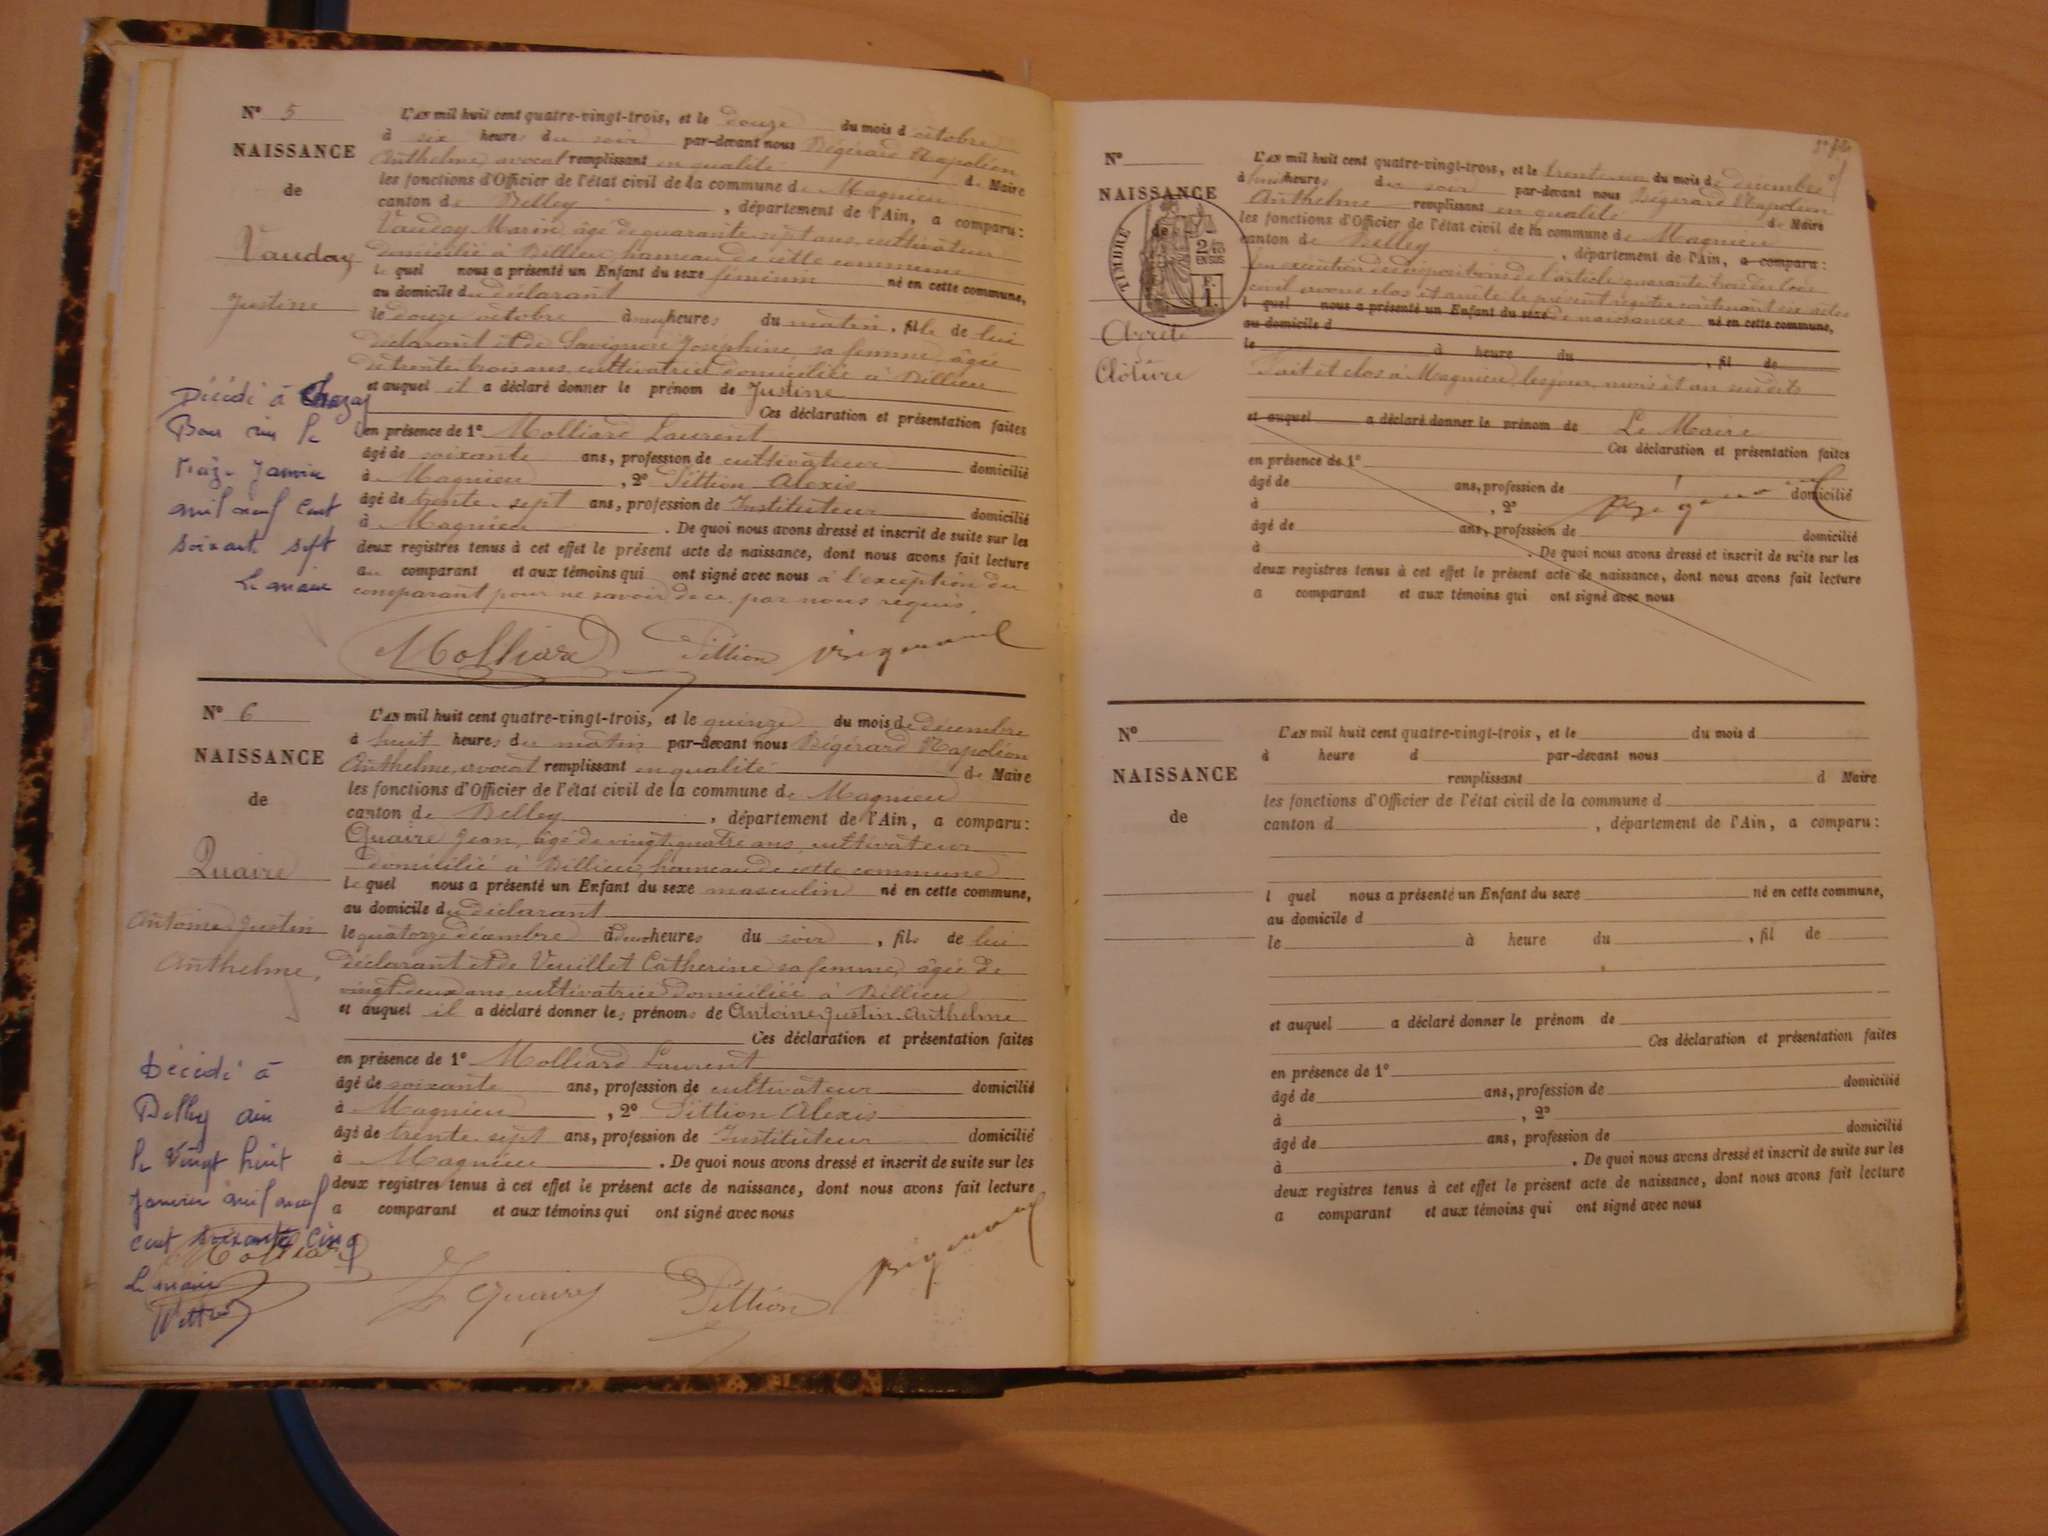 N° 5
NAISSANCE
de
Vauday
Justine
L'AN mil huit cent quatre-vingt-trois, et le douze du mois d octobre
à six heures du soir par-devant nous Bégérard Napoléon
Anthelme avocat remplissant en qualité de Maire
les fonctions d'Officier de l'état civil de la commune de Magnieu
canton de Belley, département de l'Ain, a comparu:
Vauday Marin âgé de quarante sept ans, cultivateur
domicilié à Billieu, hameau de cette commune
le quel nous a présenté un Enfant du sexe féminin né en cette commune,
au domicile du déclarant
le douze octobre à heures du matin, fille de lui
déclarant et de Joséphine sa femme, âgée
de trente trois ans, cultivatrice domiciliée à Billieu
et auquel il a déclaré donner le prénom de Justine
Ces déclaration et présentation faites
en présence de 1° Molliard Laurent
âgé de soixante ans, profession de cultivateur domicilié
à Magnieu, 2° Pittion Alexis
âgé de trente sept ans, profession de Instituteur domicilié
à Magnieu. De quoi nous avons dressé et inscrit de suite sur les
deux registres tenus à cet effet le présent acte de naissance, dont nous avons fait lecture
au comparant et aux témoins qui ont signé avec nous à l'exception du
comparant pour ne savoir de ce par nous requis.
Décédé à
le
treize Janvier
mil neuf cent
soixante sept
Le maire
Molliard Pittion
N° 6
NAISSANCE
de
Quaire
Antoine Justin
Anthelme,
L'AN mil huit cent quatre-vingt-trois, et le quinze du mois de décembre
à huit heures du matin par-devant nous Bégérard Napoléon
Anthelme, avocat remplissant en qualité de Maire
les fonctions d'Officier de l'état civil de la commune de Magnieu
canton de Belley, département de l'Ain, a comparu:
Quaire Jean, âgé de vingt quatre ans, cultivateur
domicilié à Billieu, hameau de cette commune
le quel nous a présenté un Enfant du sexe masculin né en cette commune,
au domicile du déclarant
le quatorze décembre à deux heures du soir, fils de lui
déclarant et de Veuillet Catherine sa femme, âgée de
vingt deux ans, cultivatrice domiciliée à Billieu
et auquel il a déclaré donner les prénoms de Antoine Justin Anthelme
Ces déclaration et présentation faites
en présence de 1° Molliard Laurent
âgé de soixante ans, profession de cultivateur domicilié
à Magnieu, 2° Pittion Alexis
âgé de trente sept ans, profession de Instituteur domicilié
à Magnieu. De quoi nous avons dressé et inscrit de suite sur les
deux registres tenus à cet effet le présent acte de naissance, dont nous avons fait lecture
a comparant et aux témoins qui ont signé avec nous
Décédé à
Belley ain
le vingt huit
Janvier mil neuf
cent soixante cinq
Le maire
Molliard Quaire Pittion
N°
NAISSANCE
de
TIMBRE
2/10
EN SUS
F.
1.
Arrêté
Clôture
L'AN mil huit cent quatre-vingt-trois, et le trente un du mois de décembre
à heures du soir par-devant nous Bégérard Napoléon
Anthelme remplissant en qualité de Maire
les fonctions d'Officier de l'état civil de la commune de Magnieu
canton de Belley, département de l'Ain, a comparu:
en exécution des dispositions de l'article quarante trois du Code
civil avons clos et arrêté le présent registre contenant six actes
l quel nous a présenté un Enfant du sexe de naissances né en cette commune,
au domicile d
le à heure du, fil de
Fait et clos à Magnieu, les jour, mois et an susdits
et auquel a déclaré donner le prénom de Le Maire
Ces déclaration et présentation faites
en présence de 1°
âgé de ans, profession de domicilié
à, 2°
âgé de ans, profession de domicilié
à. De quoi nous avons dressé et inscrit de suite sur les
deux registres tenus à cet effet le présent acte de naissance, dont nous avons fait lecture
a comparant et aux témoins qui ont signé avec nous
N°
NAISSANCE
de
L'AN mil huit cent quatre-vingt-trois, et le du mois d
à heure d par-devant nous
remplissant d Maire
les fonctions d'Officier de l'état civil de la commune d
canton d, département de l'Ain, a comparu:
l quel nous a présenté un Enfant du sexe né en cette commune,
au domicile d
le à heure du, fil de
et auquel a déclaré donner le prénom de
Ces déclaration et présentation faites
en présence de 1°
âgé de ans, profession de domicilié
à, 2°
âgé de ans, profession de domicilié
à. De quoi nous avons dressé et inscrit de suite sur les
deux registres tenus à cet effet le présent acte de naissance, dont nous avons fait lecture
a comparant et aux témoins qui ont signé avec nous